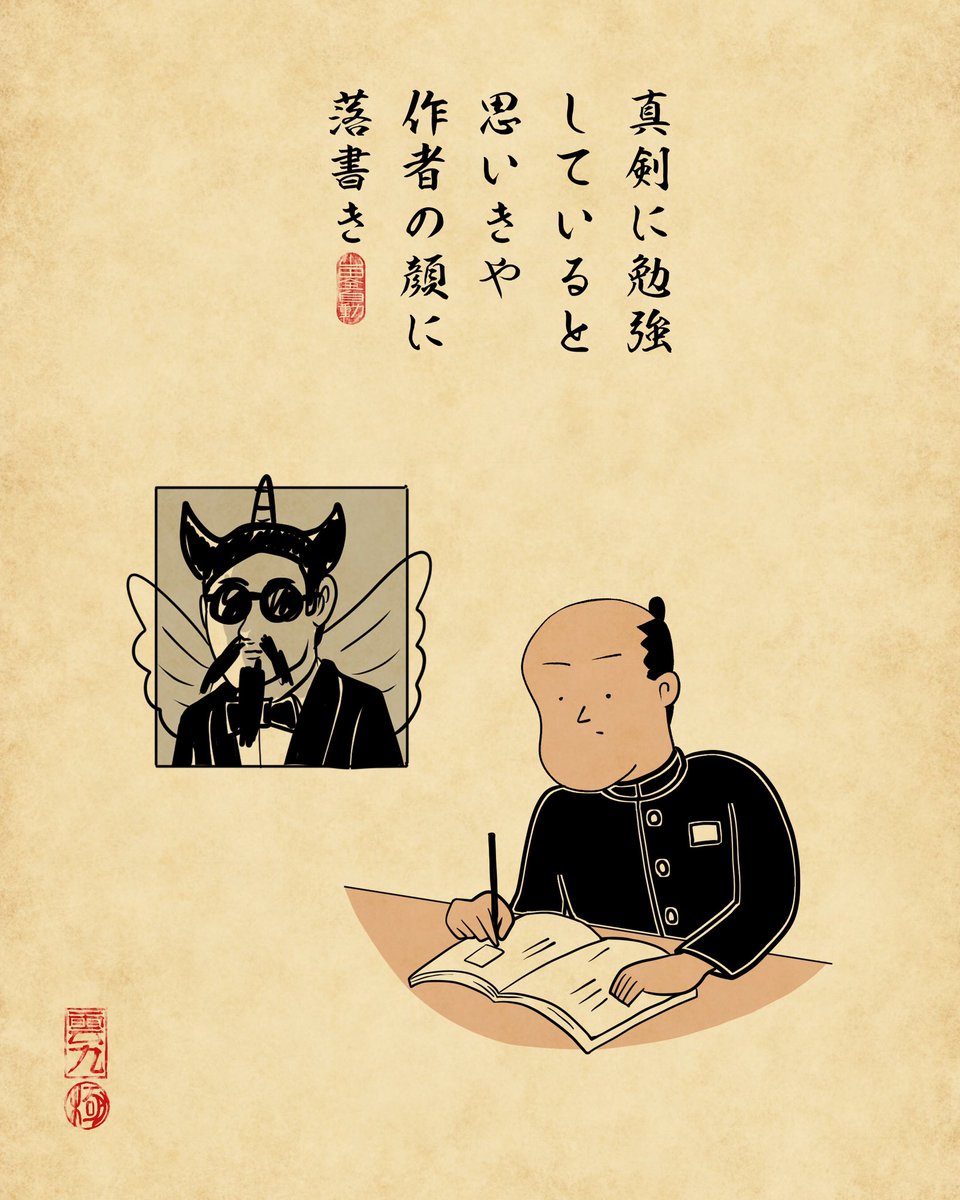 真剣に勉強
していると
思いきや
作者の顔に
落書き